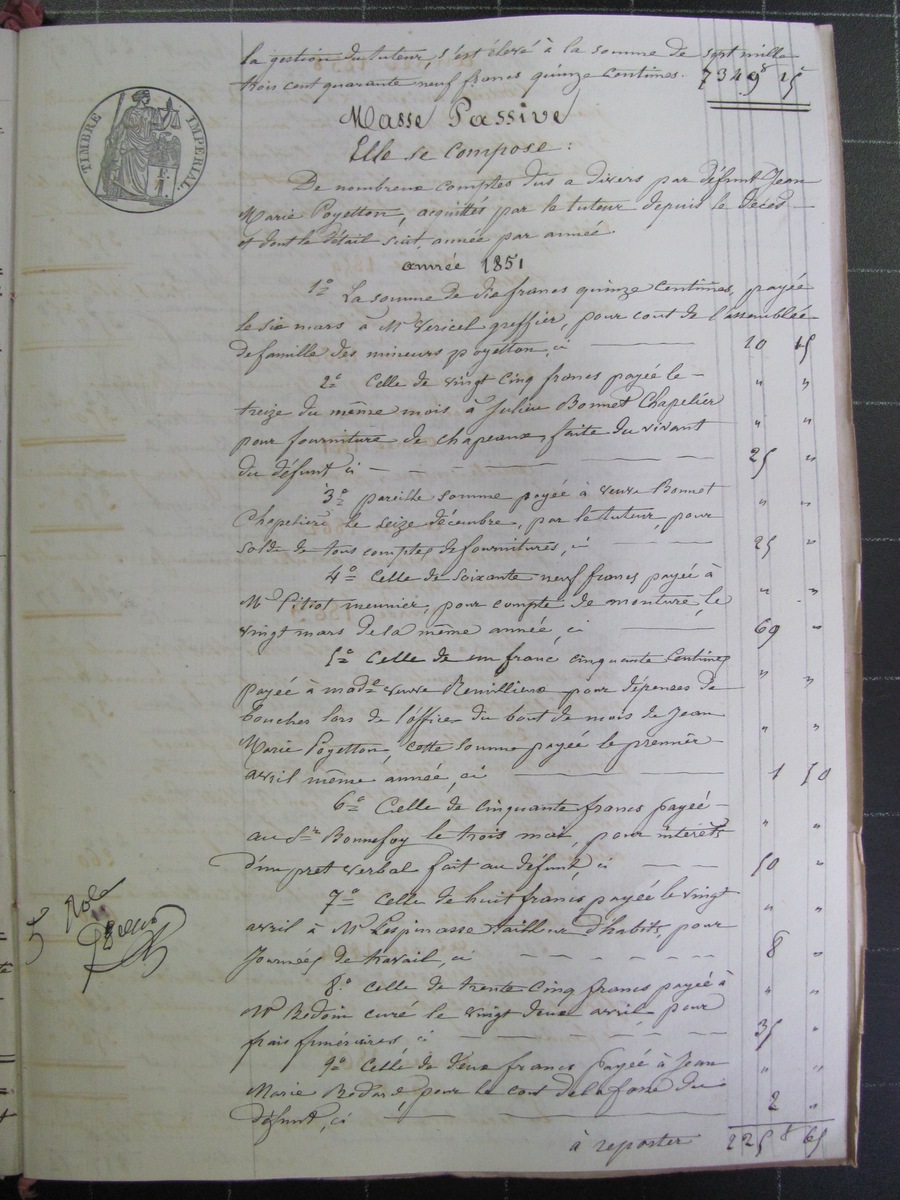 la gestion du tuteur, s'est élevé à la somme de sept mille
trois cent quarante neuf francs quinze centimes. 7349f 15c
TIMBRE IMPERIAL.
Masse Passive
Elle se compose :
De nombreux comptes dus a divers par défunt Jean
Marie Poyetton, acquittés par le tuteur depuis le décès
et dont le détail suit, année par année.
année 1851
1o La somme de dix francs quinze centimes, payée
le six mars à Mr Vericel greffier, pour cout de l'assemblée
de famille des mineurs poyetton, ci 10 15
2o Celle de vingt cinq francs payée le " "
treize du même mois à Julien Bonnet Chapelier
pour fourniture de chapeaux, faite du vivant " "
du défunt ci 25 "
3o pareille somme payée à veuve Bonnet " "
Chapelière le seize décembre, par le tuteur, pour
solde de tous comptes de fournitures, ci 25 "
4o Celle de soixante neuf francs payée à
Mr Pitiot meunier, pour compte de monture, le " "
vingt mars de la même année, ci 69 "
5o Celle de un franc cinquante centimes
payée à made veuve Revillieux pour dépenses de " "
bouches lors de l'office du bout de mois de Jean
Marie Poyetton, cette somme payée le premier " "
avril même année, ci 1 50
6o Celle de cinquante francs payée
au Sr Bonnefoy le trois mai, pour intérêts " "
d'un pret verbal fait au défunt, ci 50 "
7o Celle de huit francs payée le vingt
avril à Mr Lespinasse tailleur d'habits, pour " "
Journées de travail, ci 8 "
5 Role
8o celle de trente cinq francs payée à
Mr Bedoin curé le vingt deux avril pour " "
frais funéraires ci 35 "
9o Celle de deux francs payée à Jean " "
Marie pour le cout de la fosse du
défunt, ci 2 "
à reporter 225f 65